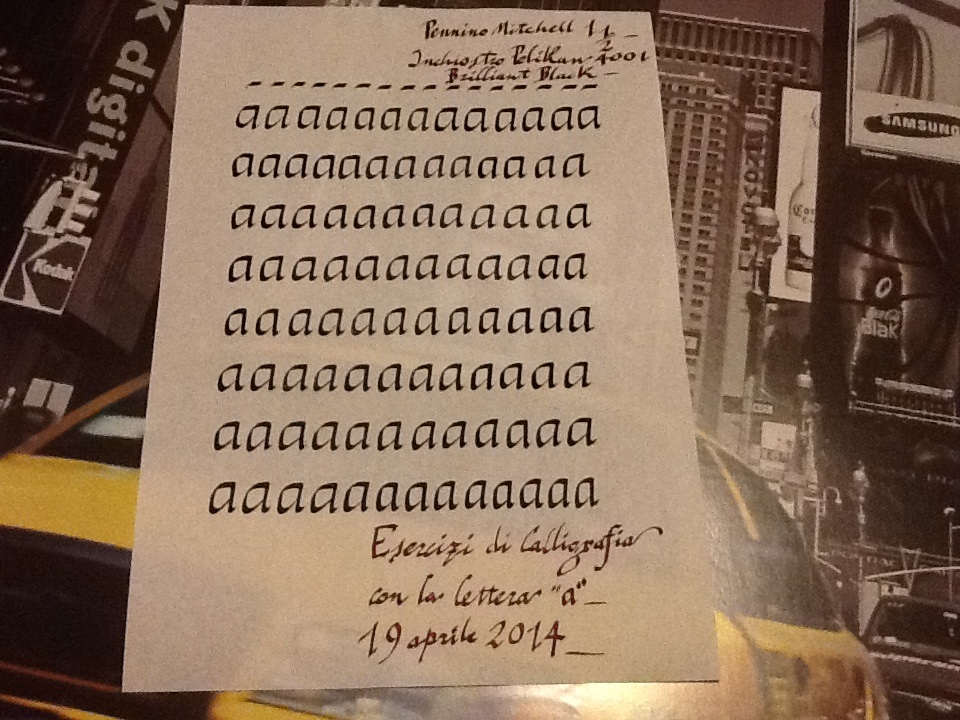 Pennino Mitchell 1 1/2 _
Inchiostro Pelikan 4001
Brilliant Black _
- - - - - - - - - - - - - - -
aaaaaaaaaaaaa
aaaaaaaaaaaaa
aaaaaaaaaaaaa
aaaaaaaaaaaaa
aaaaaaaaaaaaa
aaaaaaaaaaaaa
aaaaaaaaaaaaa
aaaaaaaaaaaaaa
Esercizi di Calligrafia
con la lettera "a"_
19 aprile 2014_
K digital
Kodak
SAMSUNG
BlaK